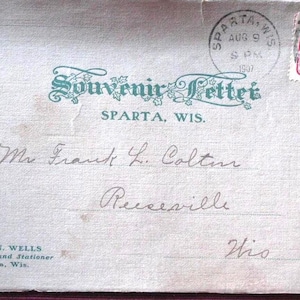 SPARTA, WIS.
AUG 9
8 PM
1907
Souvenir Letter
SPARTA, WIS.
Mr Frank L. Colton
Reeseville
Wis
WELLS
and Stationer
Wis.